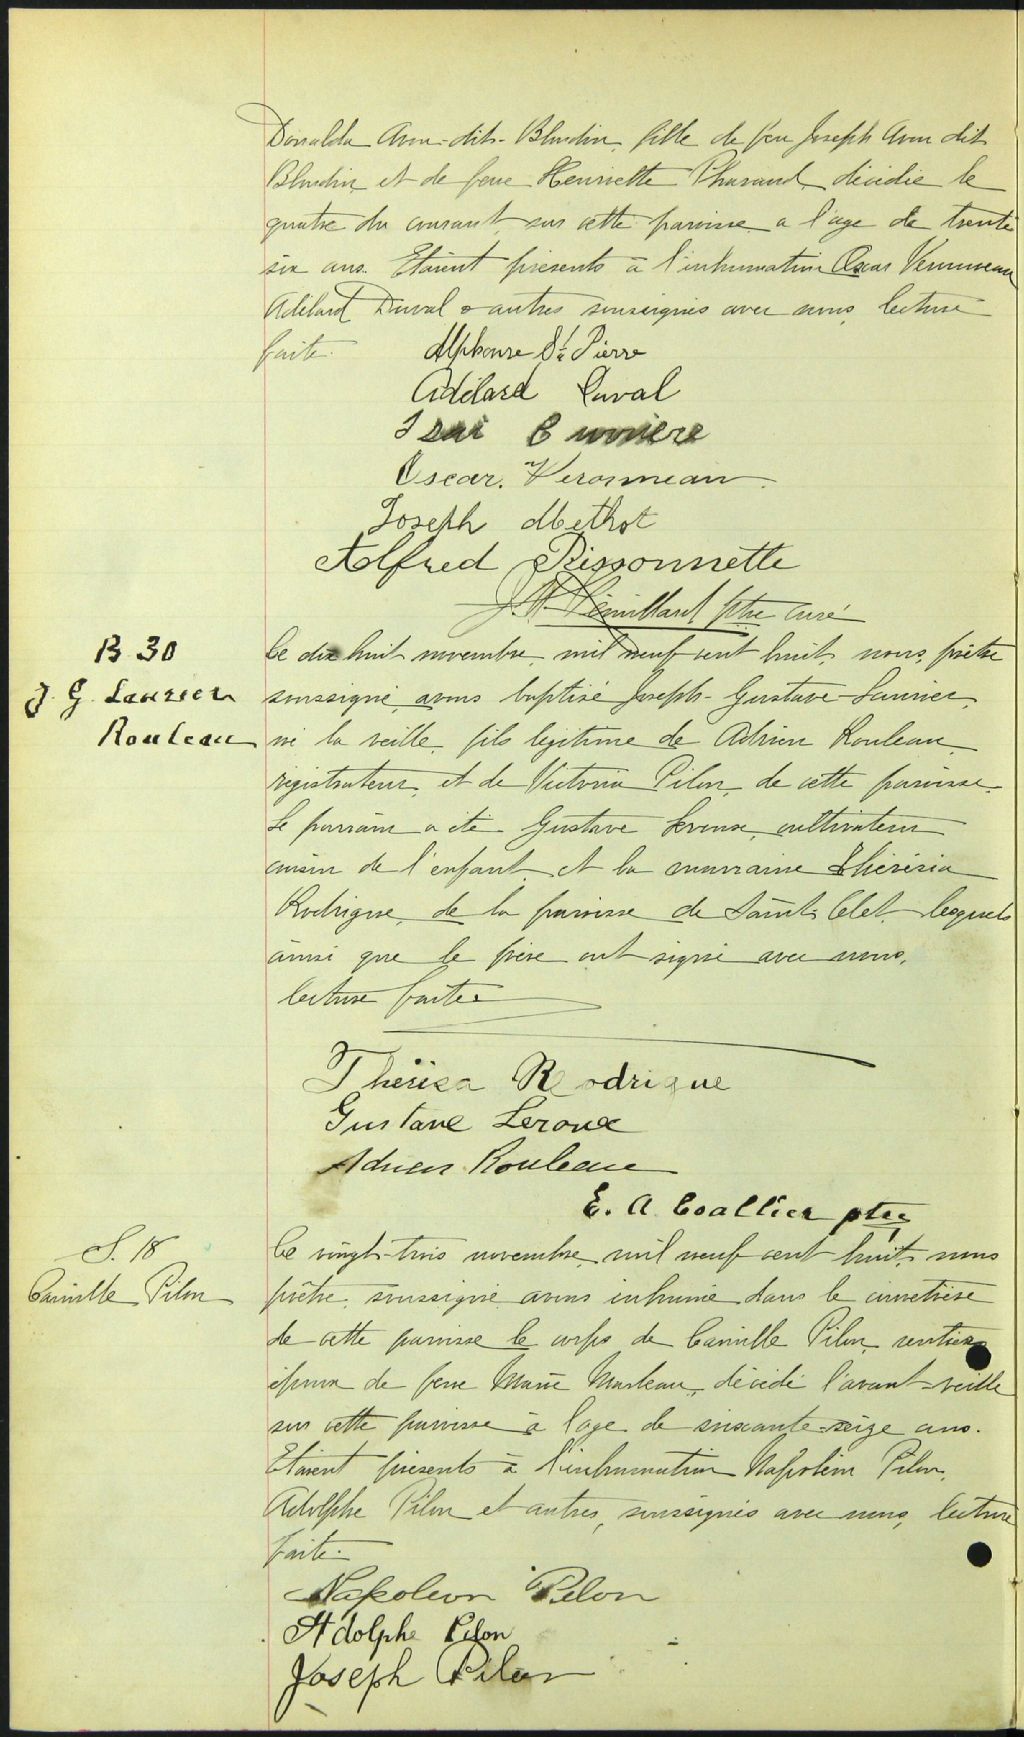 Donalda Aron-dit-Blondin, fille de feu Joseph Aron dit
Blondin, et de feue Henriette Pharand, décédée le
quatre du courant, sur cette paroisse a l'age de trente
six ans. Etaient présents à l'inhumation Oscar Veronneau
Adélard Duval & autres soussignés avec nous, lecture
faite.
Alphonse St Pierre
Adélard Duval
Oscar. Veronneau
Joseph Methot
Alfred Bissonnette
ptre curé
B 30
J. G. Laurier
Rouleau
Ce dix huit novembre, mil neuf cent huit, nous, prêtre
soussigné, avons baptisé Joseph-Gustave-Laurier,
né la veille, fils légitime de Adrien Rouleau,
régistrateur, et de Victoria Pilon, de cette paroisse.
Le parrain a été Gustave Leroux, cultivateur
cousin de l'enfant, et la marraine Thérésia
Rodrigue, de la paroisse de Saint-Clet lesquels
ainsi que le père ont signé avec nous,
lecture faite.
Thérèsa Rodrigue
Gustave Leroux
Adrien Rouleau
E. A. Coallier ptre
S. 18
Camille Pilon
Ce vingt-trois novembre, mil neuf cent huit, nous
prêtre, soussigné, avons inhumé dans le cimetière
de cette paroisse le corps de Camille Pilon, rentier
époux de feue Marie Marleau, décédé l'avant-veille
sur cette paroisse à l'age de soixante-seize ans.
Etaient présents à l'inhumation Napoléon Pilon,
Adolphe Pilon et autres, soussignés avec nous, lecture
faite.
Napoleon Pilon
Adolphe Pilon
Joseph Pilon